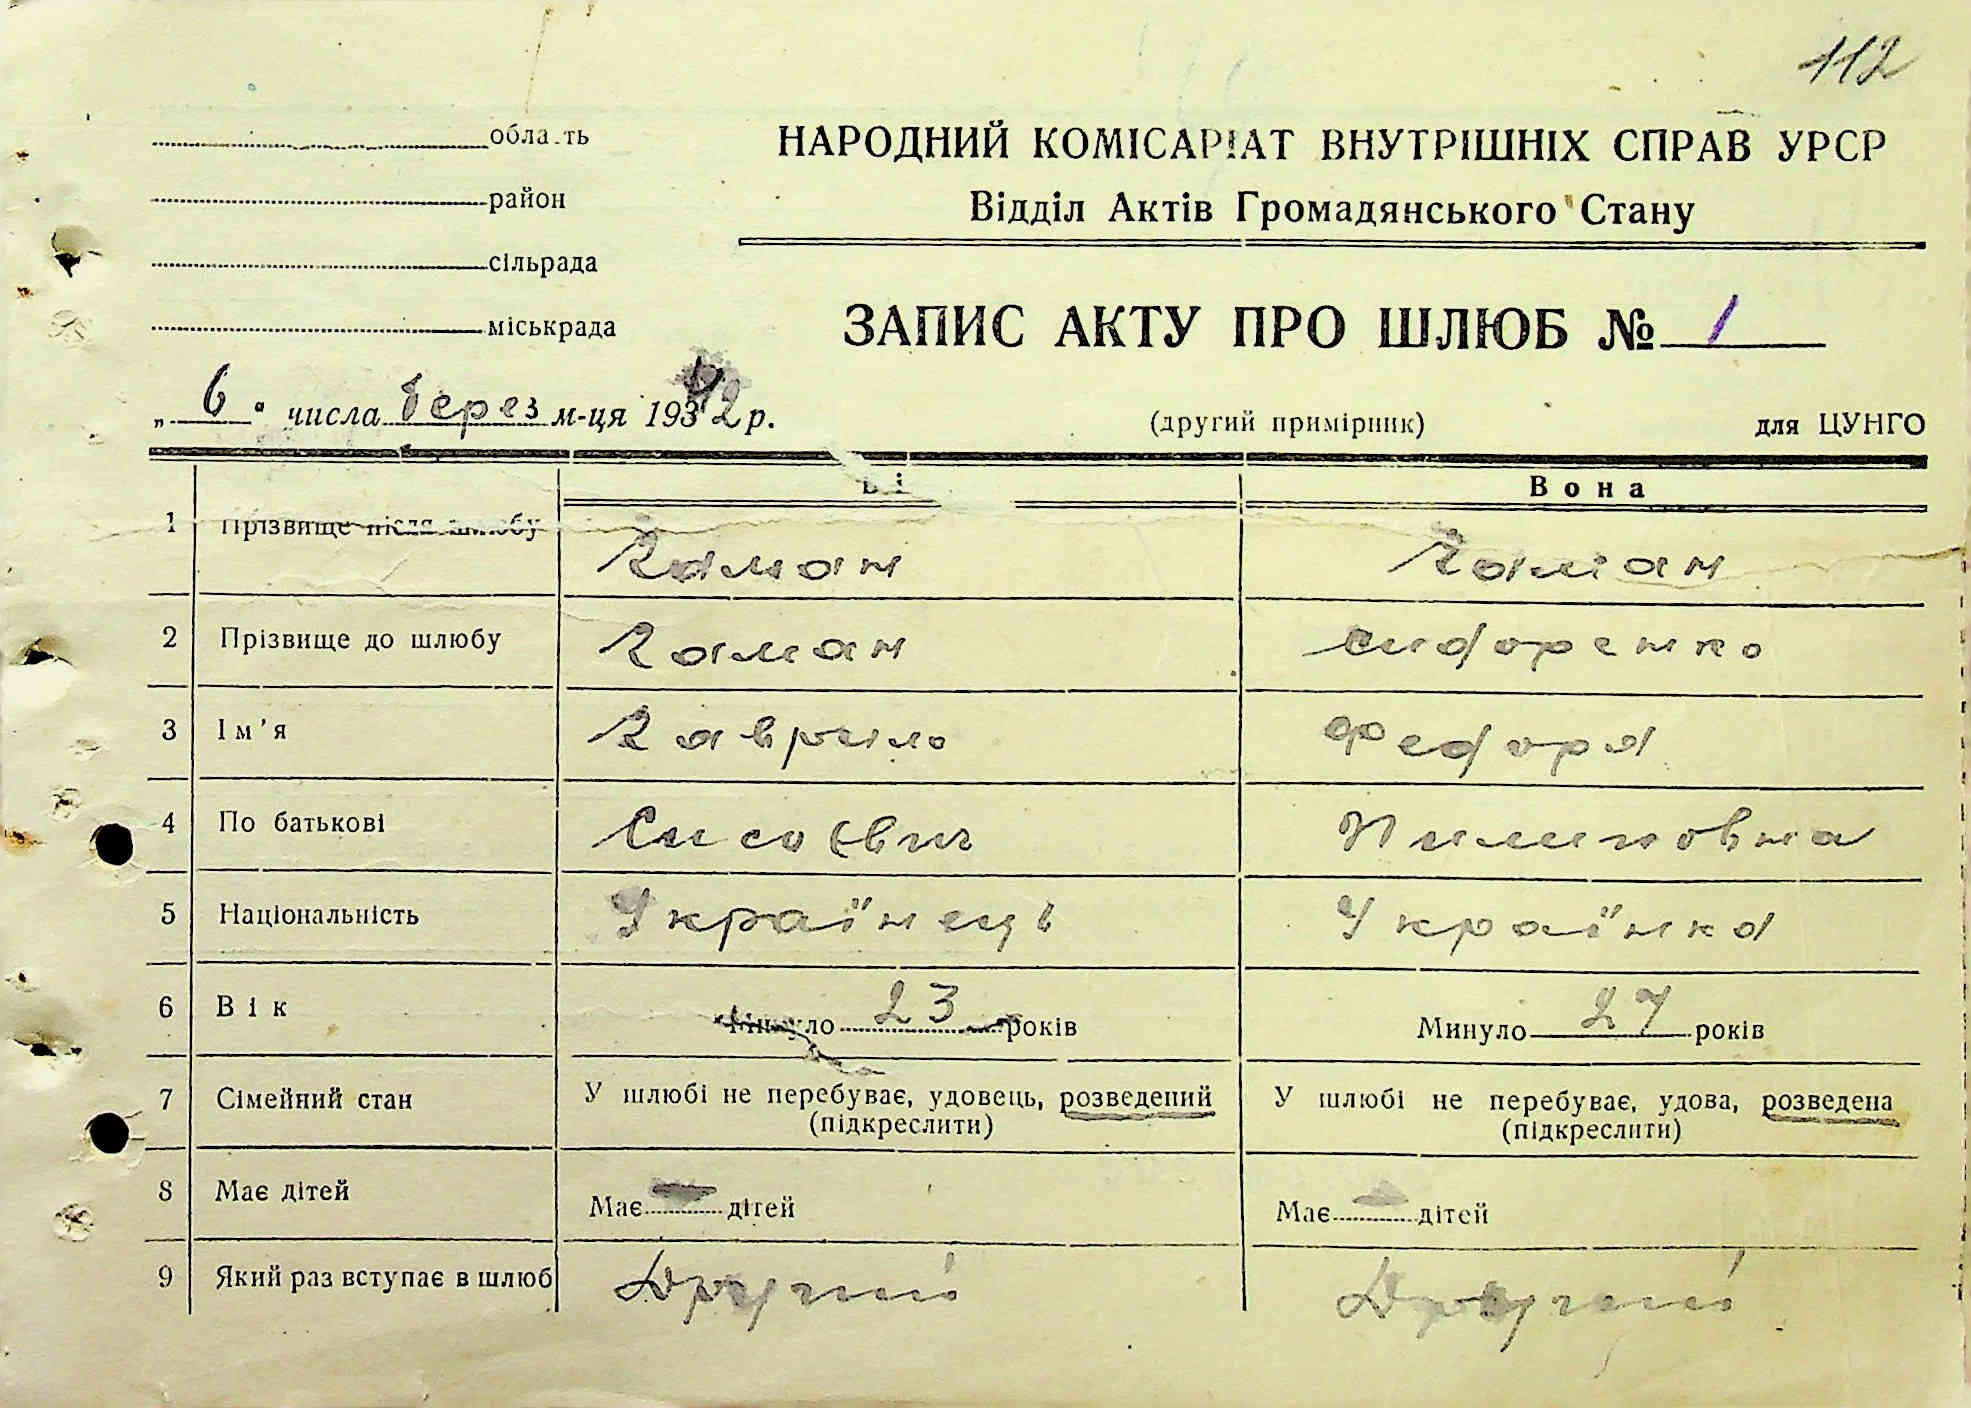 112
область
район
сільрада
міськрада
НАРОДНИЙ КОМІСАРІАТ ВНУТРІШНІХ СПРАВ УРСР
Відділ Актів Громадянського Стану
ЗАПИС АКТУ ПРО ШЛЮБ № 1
„ 6 " числа берез м-ця 1942 р.
(другий примірник) для ЦУНГО
Ві Вона
1 Прізвище після шлюбу Гаман Гаман
2 Прізвище до шлюбу Гаман Сидоренко
3 Ім'я Гаврило Федора
4 По батькові Сисоєвич Пилиповна
5 Національність Українець Українка
6 Вік Минуло 23 років Минуло 27 років
7 Сімейний стан У шлюбі не перебуває, удовець, розведений У шлюбі не перебуває, удова, розведена
(підкреслити) (підкреслити)
8 Має дітей Має дітей Має дітей
9 Який раз вступає в шлюб Другий Другий